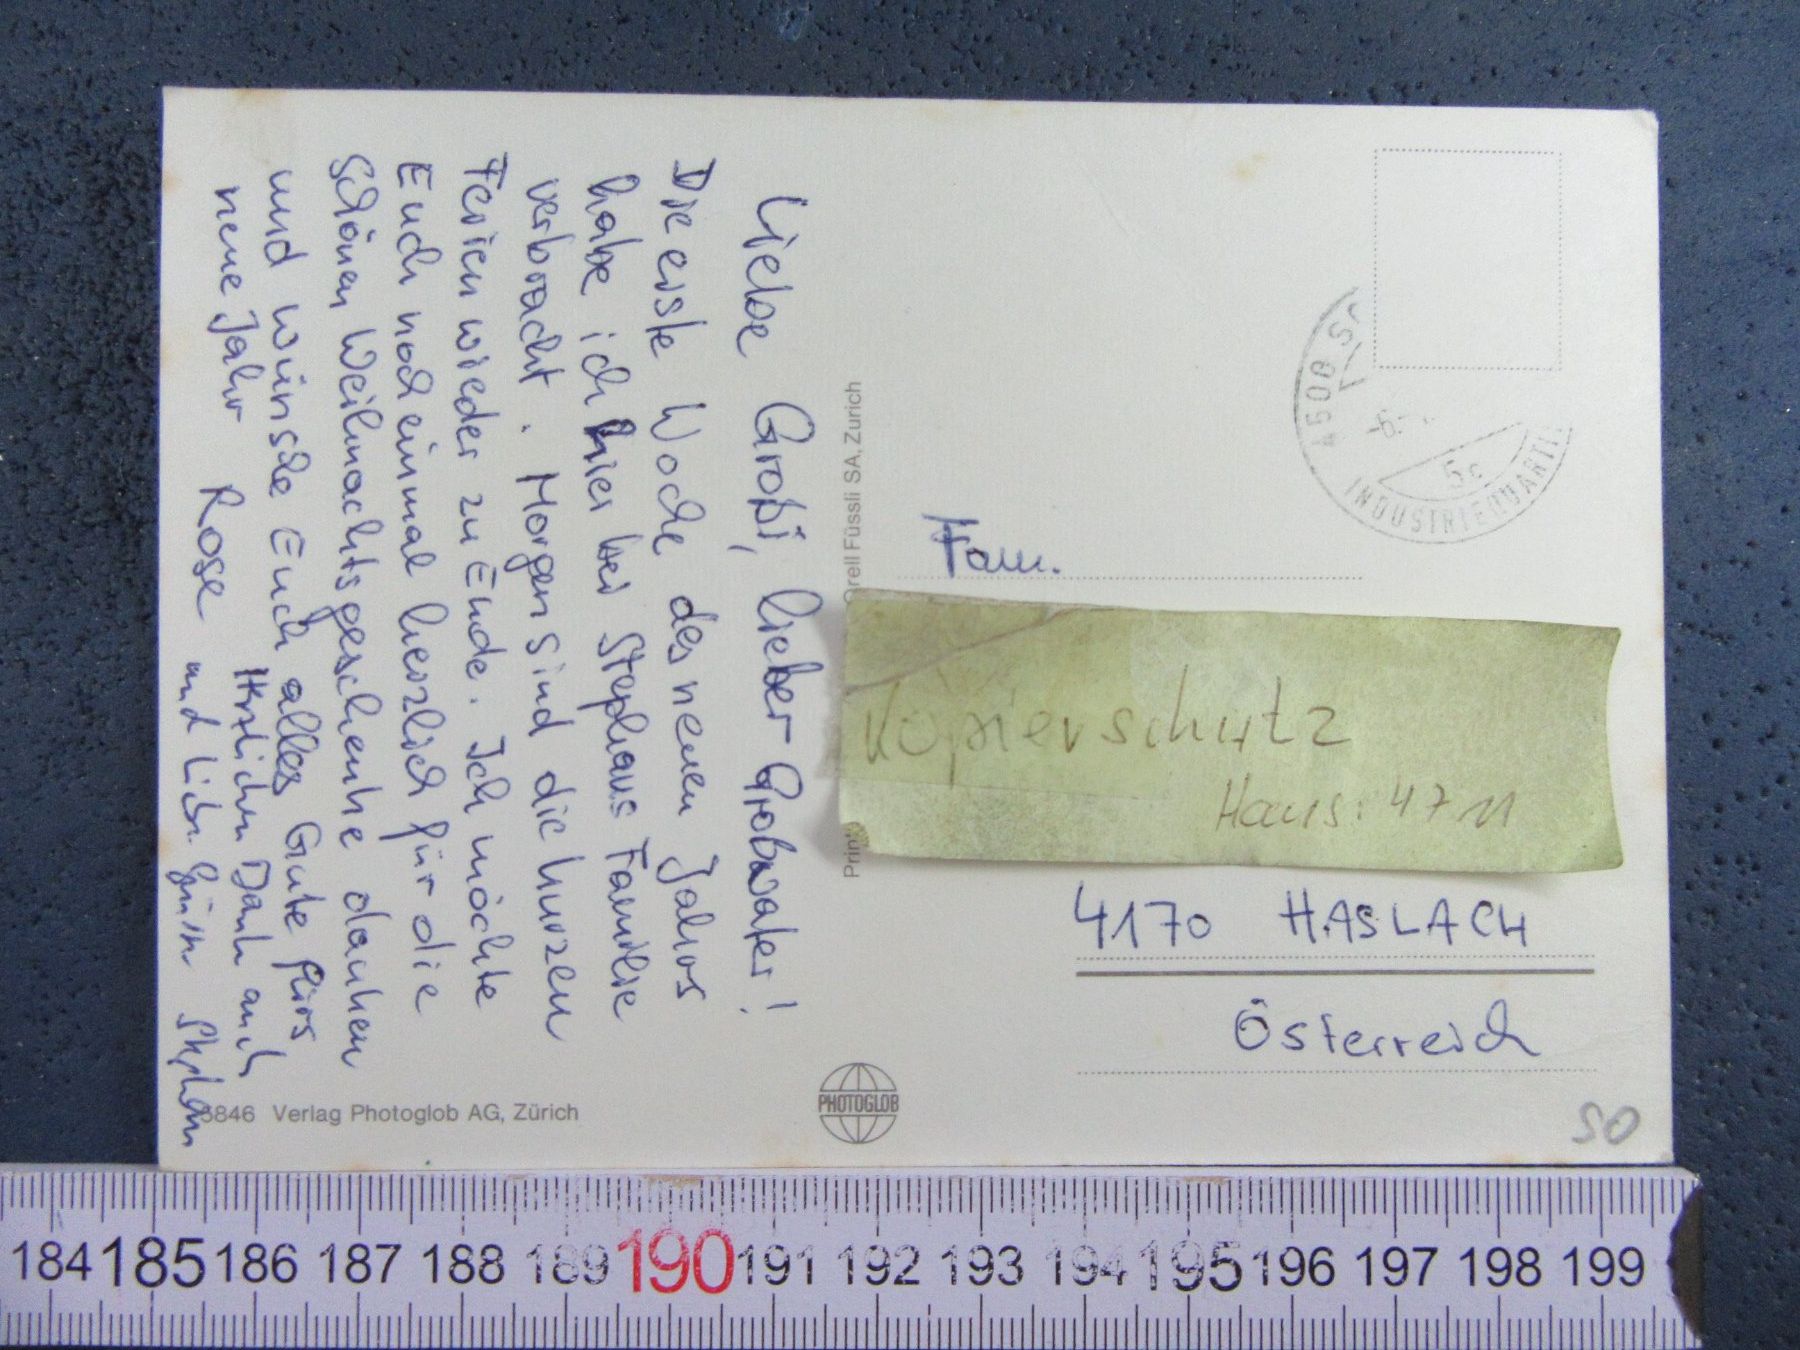 Liebe Großi, lieber Großvater!
Die erste Woche des neuen Jahres
habe ich hier bei Stephans Familie
verbracht. Morgen sind die kurzen
Ferien wieder zu Ende. Ich möchte
Euch noch einmal herzlich für die
schönen Weihnachtsgeschenke danken
und wünsche Euch alles Gute fürs
neue Jahr
Herzlichen Dank auch
Rose
und liebe Grüße Stephan
5846 Verlag Photoglob AG, Zürich
Orell Füssli SA, Zurich
PHOTOGLOB
4500
INDUSTRIEQUARTI
Fam.
Kopierschutz
Haus: 4711
4170 HASLACH
Österreich
SO
184 185 186 187 188 189 190 191 192 193 194 195 196 197 198 199